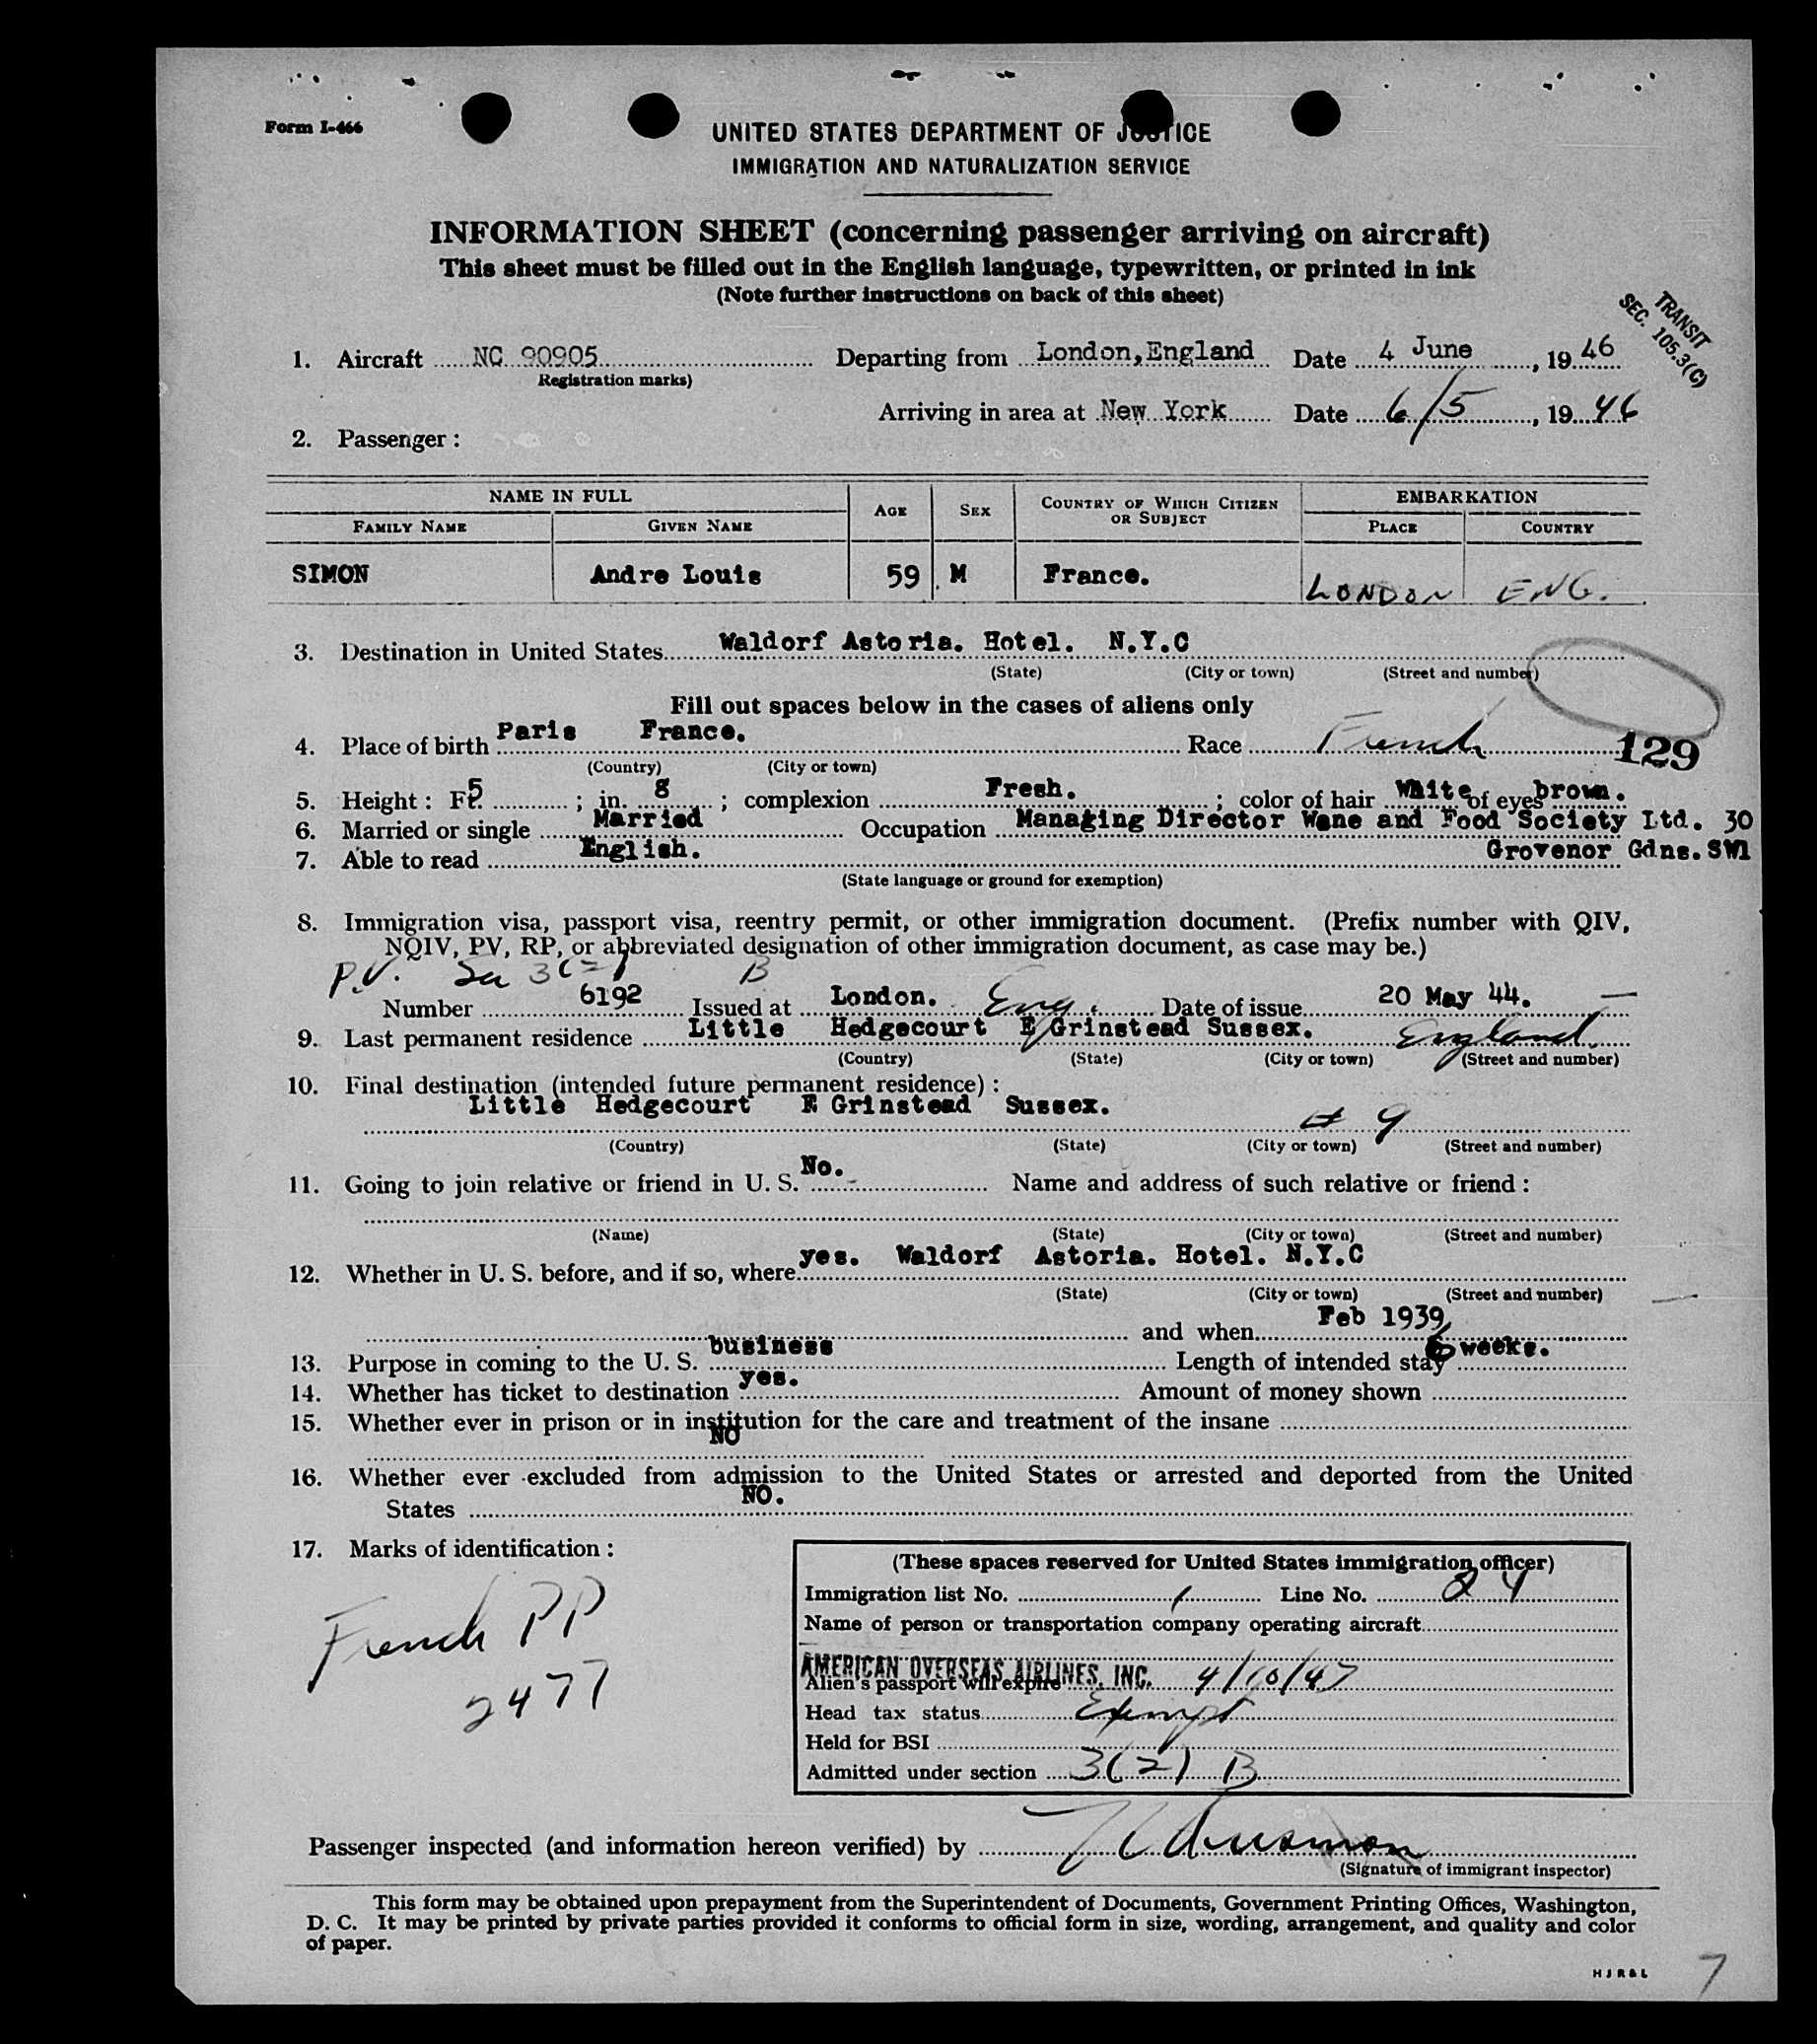 Form I-466
UNITED STATES DEPARTMENT OF JUSTICE
IMMIGRATION AND NATURALIZATION SERVICE
INFORMATION SHEET (concerning passenger arriving on aircraft)
This sheet must be filled out in the English language, typewritten, or printed in ink
(Note further instructions on back of this sheet)
TRANSIT
SEC. 105.3(C)
1. Aircraft NC 90905 Departing from London, England Date 4 June, 1946
(Registration marks)
Arriving in area at New York Date 6/5, 1946
2. Passenger:
NAME IN FULL AGE SEX COUNTRY OF WHICH CITIZEN OR SUBJECT EMBARKATION
FAMILY NAME GIVEN NAME PLACE COUNTRY
SIMON Andre Louis 59 M France. LONDON ENG.
3. Destination in United States Waldorf Astoria. Hotel. N.Y.C
(State) (City or town) (Street and number)
Fill out spaces below in the cases of aliens only
4. Place of birth Paris France. Race French
129
(Country) (City or town)
5. Height: Ft. 5; in. 8; complexion Fresh.; color of hair White of eyes brown.
6. Married or single Married Occupation Managing Director Wane and Food Society Ltd. 30
7. Able to read English. Grovenor Gdns. SW1
(State language or ground for exemption)
8. Immigration visa, passport visa, reentry permit, or other immigration document. (Prefix number with QIV,
NQIV, PV, RP, or abbreviated designation of other immigration document, as case may be.)
P.V. B
Number 6192 Issued at London. Eng. Date of issue 20 May 44.
9. Last permanent residence Little Hedgecourt E Grinstead Sussex. England.
(Country) (State) (City or town) (Street and number)
10. Final destination (intended future permanent residence):
Little Hedgecourt E Grinstead Sussex.
# 9
(Country) (State) (City or town) (Street and number)
11. Going to join relative or friend in U. S. No. Name and address of such relative or friend:
(Name) (State) (City or town) (Street and number)
12. Whether in U. S. before, and if so, where yes. Waldorf Astoria. Hotel. N.Y.C
(State) (City or town) (Street and number)
and when Feb 1939
13. Purpose in coming to the U. S. business Length of intended stay 6 weeks.
14. Whether has ticket to destination yes. Amount of money shown
15. Whether ever in prison or in institution for the care and treatment of the insane
NO
16. Whether ever excluded from admission to the United States or arrested and deported from the United
States NO.
17. Marks of identification:
French PP
2477
(These spaces reserved for United States immigration officer)
Immigration list No. 1 Line No. 24
Name of person or transportation company operating aircraft
AMERICAN OVERSEAS AIRLINES, INC.
Alien's passport will expire 4/10/47
Head tax status Exempt
Held for BSI
Admitted under section 3(2) B
Passenger inspected (and information hereon verified) by
(Signature of immigrant inspector)
This form may be obtained upon prepayment from the Superintendent of Documents, Government Printing Offices, Washington,
D. C. It may be printed by private parties provided it conforms to official form in size, wording, arrangement, and quality and color
of paper.
H J R & L
7